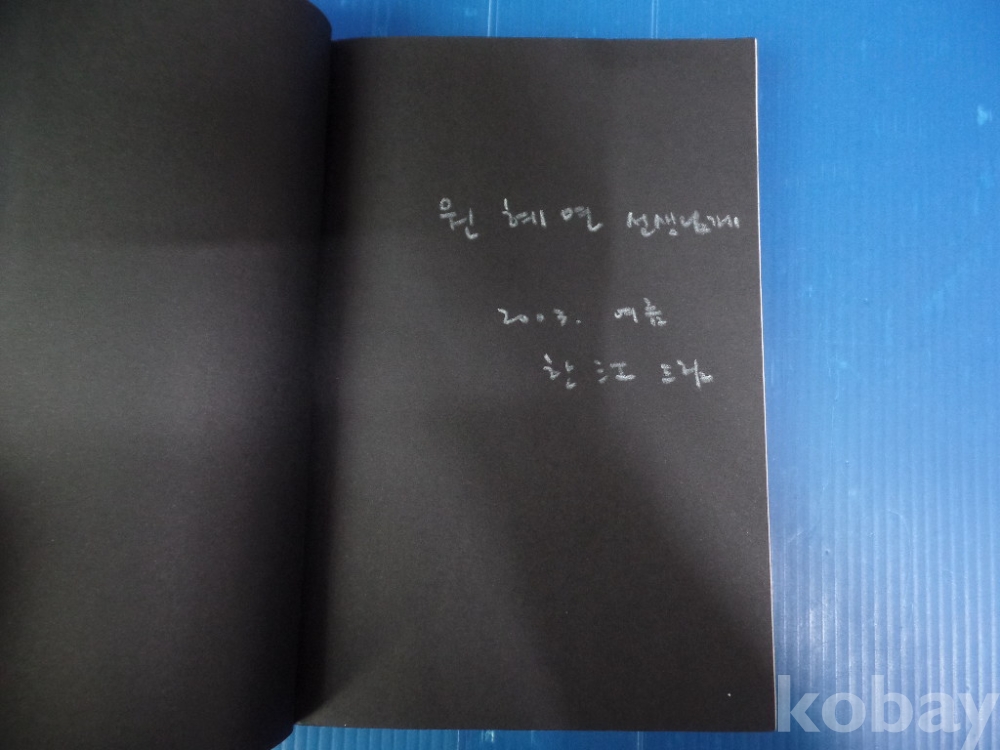 원 혜 연 선생님께
2003. 여름
한 江 드림
kobay